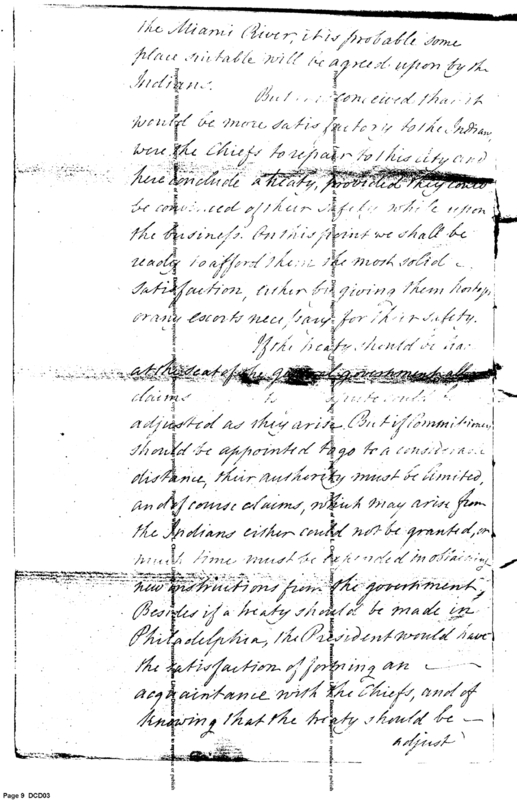 the Miami River, it is probable some
place suitable will be agreed upon by the
Indians.
But conceived that it
would be more satisfactory to the Indians,
were the Chiefs to repair to this city and
here conclude a treaty, provided they could
be convinced of their safety while upon
the business. On this point we shall be
ready to afford them the most solid
satisfaction, either by giving them hostages
or any escorts necessary for their safety.
If the treaty should be
at the seat of the general government all
claims
adjusted as they arise. But if Commissioners
should be appointed to go to a considerable
distance, their authority must be limited,
and of course claims, which may arise from
the Indians either could not be granted, or
much time must be expended in obtaining
new instructions from the government,
Besides if a treaty should be made in
Philadelphia, the President would have
the satisfaction of forming an
acquaintance with the Chiefs, and of
knowing that the treaty should be
adjust
Page 9 DCD03